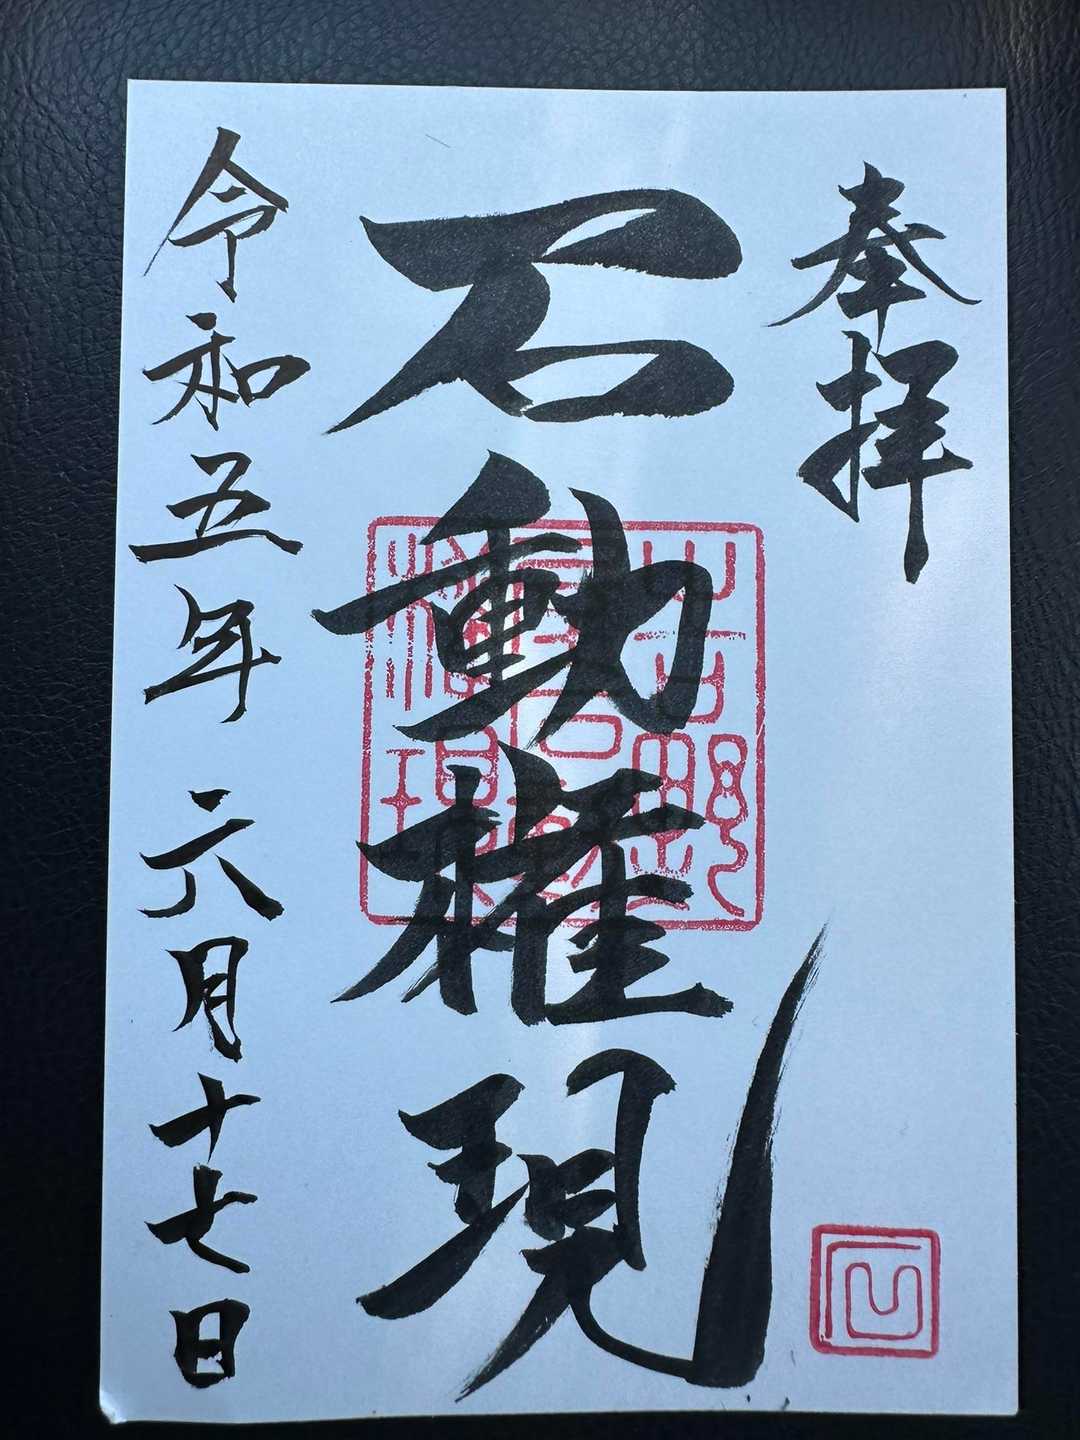 奉拝
石動権現
令和五年六月十七日